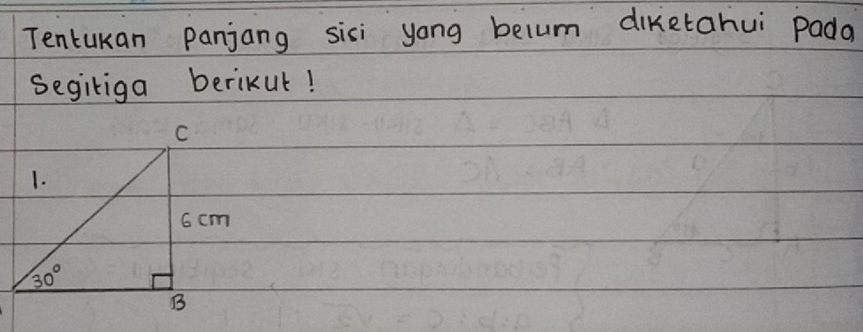 Tentukan panjang sisi yang belum diketahui pada
Segitiga berikut !
C
1.
6 cm
30°
B